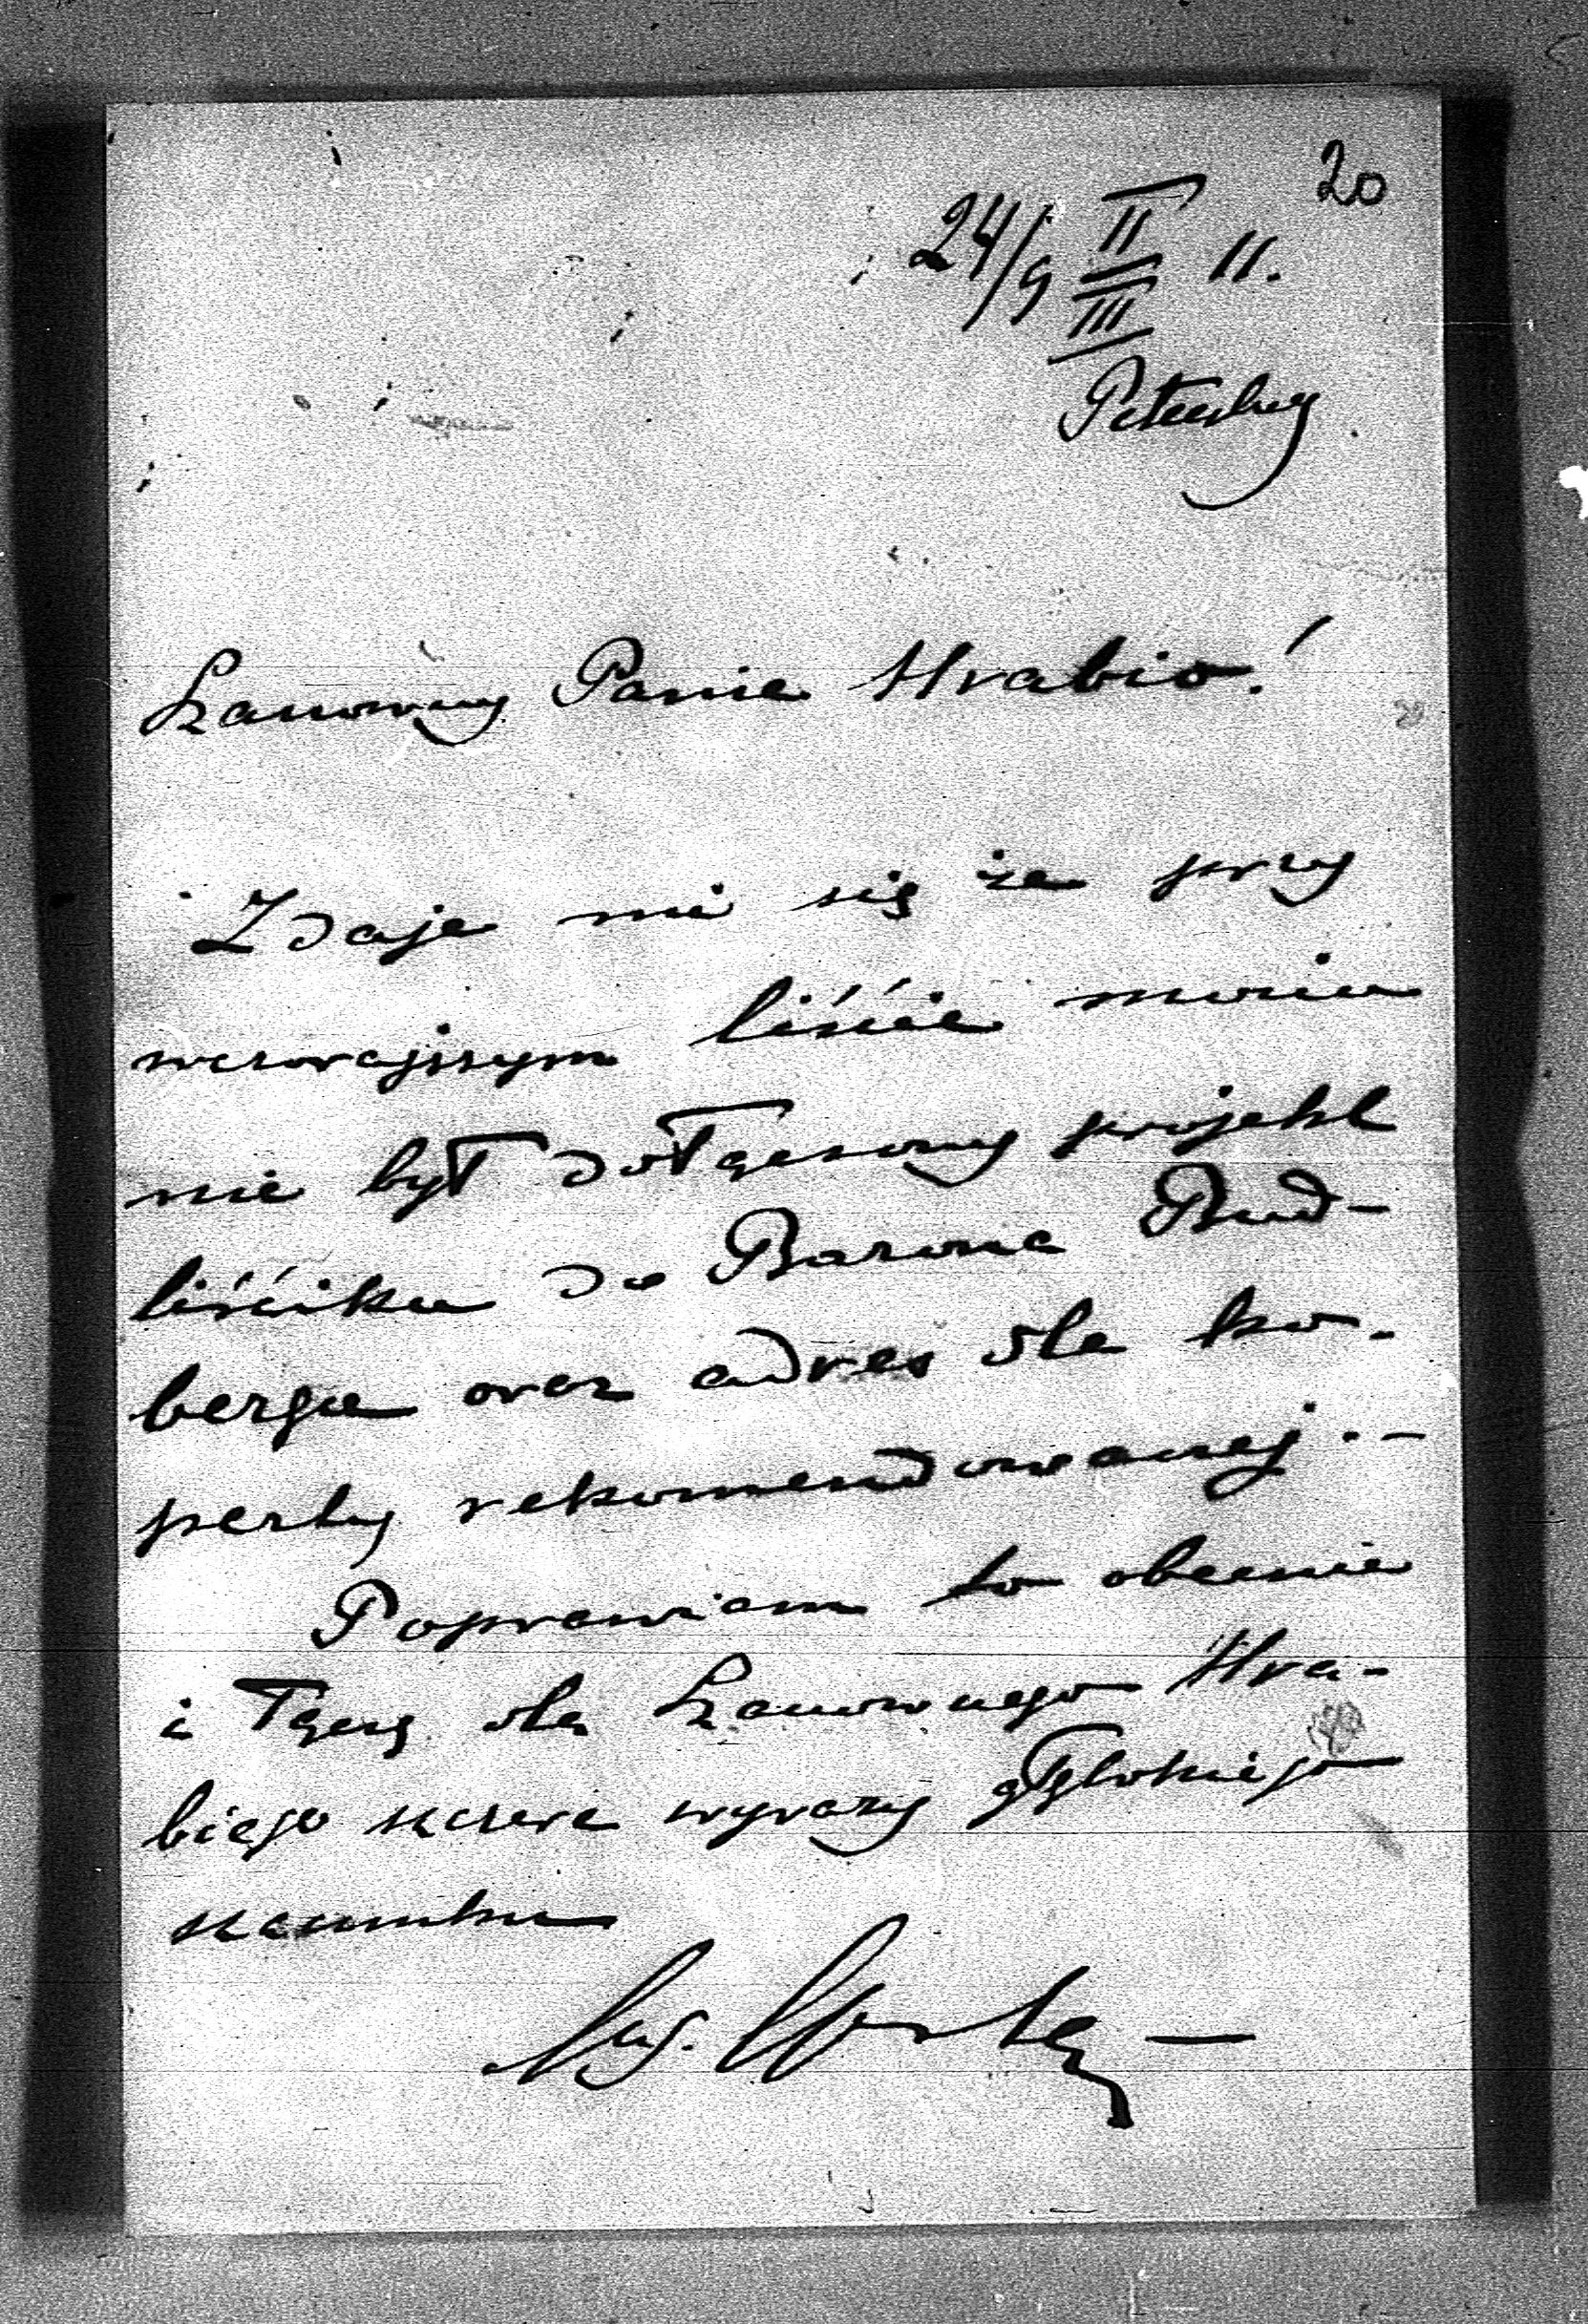 20
24/9 II/III 11.
Petersburg
Szanowny Panie Hrabio!
Zdaje mi się że przy
wczorajszym liście moim
nie był dołączony projekt
liściku do Barona Bud-
berga oraz adres dla ko-
perty rekomendowanej. –
Poprawiam to obecnie
i łączę dla Szanownego Hra-
biego szczere wyrazy głębokiego
szacunku